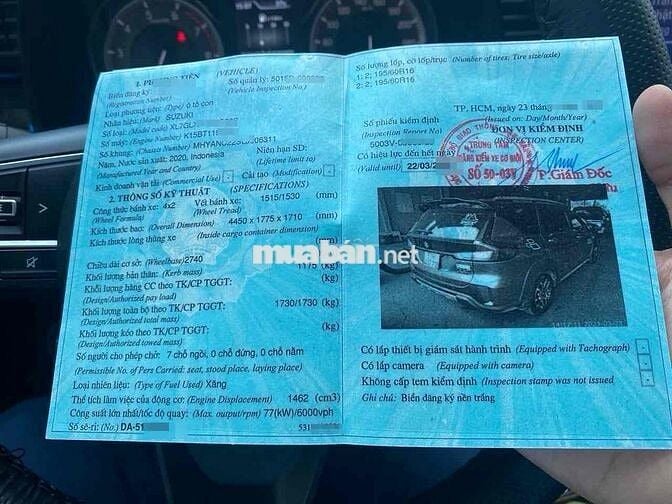 1. PHƯƠNG TIỆN (VEHICLE)
Biển đăng ký: Số quản lý: 5015D
(Registration Number) (Vehicle Inspection No.)
Loại phương tiện: (Type) ô tô con
Nhãn hiệu: (Mark) SUZUKI
Số loại: (Model code) XL7GL
Số máy: (Engine Number) K15BT11
Số khung: (Chassis Number) MHYANC22S 06311
Năm, Nước sản xuất: 2020, Indonesia Niên hạn SD:
(Manufactured Year and Country) (Lifetime limit to)
Kinh doanh vận tải (Commercial Use) Cải tạo (Modification)
2. THÔNG SỐ KỸ THUẬT (SPECIFICATIONS)
Công thức bánh xe: 4x2 Vết bánh xe: 1515/1530 (mm)
(Wheel Formula) (Wheel Tread)
Kích thước bao: (Overall Dimension) 4450 x 1775 x 1710 (mm)
Kích thước lòng thùng xe (mm)
(Inside cargo container dimension)
Chiều dài cơ sở: (Wheelbase) 2740 (mm)
Khối lượng bản thân: 1175 (kg)
(Kerb mass)
Khối lượng hàng CC theo TK/CP TGGT: (kg)
(Design/Authorized pay load)
Khối lượng toàn bộ theo TK/CP TGGT: 1730/1730 (kg)
(Design/Authorized total mass)
Khối lượng kéo theo TK/CP TGGT: (kg)
(Design/Authorized towed mass)
Số người cho phép chở: 7 chỗ ngồi, 0 chỗ đứng, 0 chỗ nằm
(Permissible No. of Pers Carried: seat, stood place, laying place)
Loại nhiên liệu: (Type of Fuel Used) Xăng
Thể tích làm việc của động cơ: (Engine Displacement) 1462 (cm3)
Công suất lớn nhất/tốc độ quay: (Max. output/rpm) 77(kW)/6000vph
Số sê-ri: (No.) DA-51 531
Số lượng lốp, cỡ lốp/trục (Number of tires; Tire size/axle)
1: 2; 195/60R16
2: 2; 195/60R16
TP. HCM, ngày 23 tháng
(Issued on: Day/Month/Year)
Số phiếu kiểm định ĐƠN VỊ KIỂM ĐỊNH
(Inspection Report No) (INSPECTION CENTER)
5003V
Có hiệu lực đến hết ngày
(Valid until) 22/03/
TRUNG TÂM
ĐĂNG KIỂM XE CƠ GIỚI
SỐ 50-03V
P.Giám Đốc
muaban.net
Có lắp thiết bị giám sát hành trình (Equipped with Tachograph)
Có lắp camera (Equipped with camera)
Không cấp tem kiểm định (Inspection stamp was not issued)
Ghi chú: Biển đăng ký nền trắng